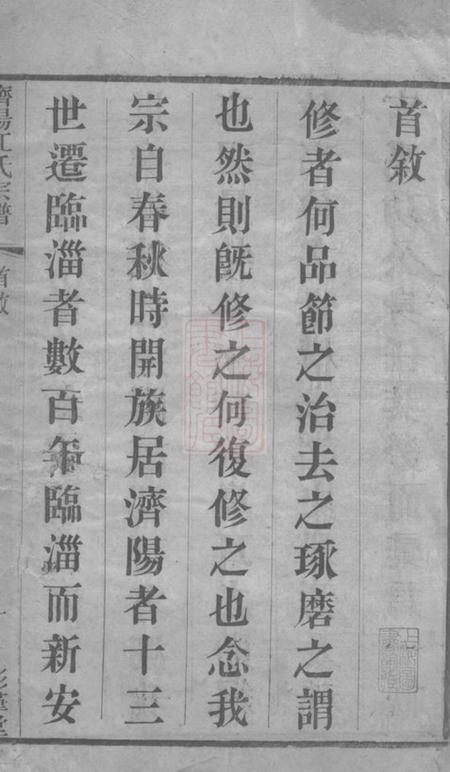 首敘
修者何品節之治去之琢磨之謂
也然則既修之何復修之也念我
宗自春秋時開族居濟陽者十三
世遷臨淄者數百年臨淄而新安
濟陽江氏宗譜
首敘